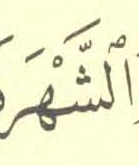 ٱلشَّهْرَ